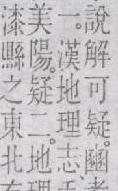 說解可疑。豳者
一。漢地理志
美陽。疑二。地理
漆縣之東北有